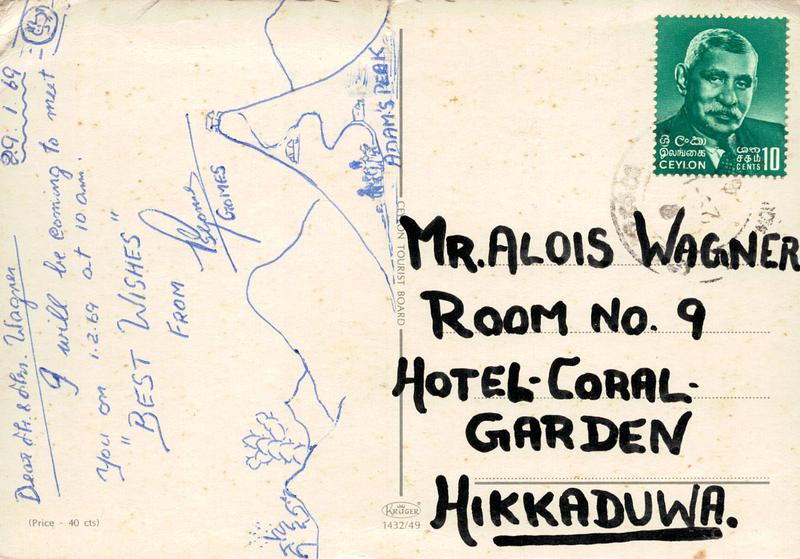 29.1.69
Dear Mr. & Mrs. Wagner
I will be coming to meet
you on 1.2.69 at 10 am.
"BEST WISHES"
FROM
GOMES
ADAM'S PEAK
(Price - 40 cts)
CEYLON TOURIST BOARD
KRÜGER
1432/49
ශ්‍රී ලංකා
இலங்கை
CEYLON
ශත
சதம்
CENTS
10
MR. ALOIS WAGNER
ROOM NO. 9
HOTEL-CORAL-
GARDEN
HIKKADUWA.